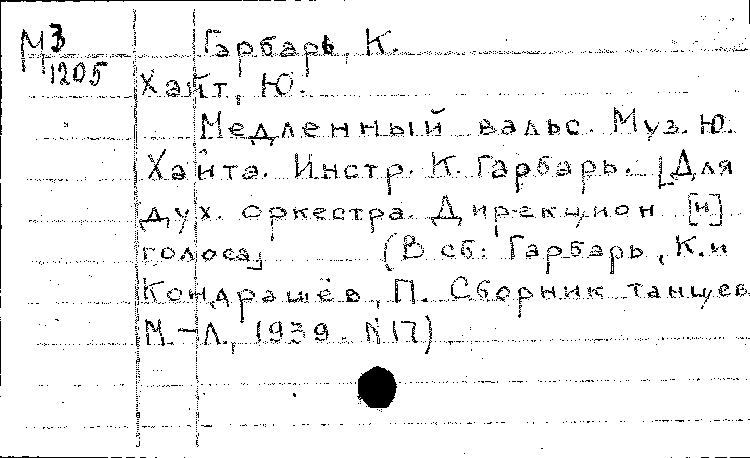 М3 Гарбарь, К.
1205 Хайт, Ю.
Медленный вальс. Муз. Ю.
Хайта. Инстр. К. Гарбарь. [Для
дух. оркестра. Дирекцион [и]
голоса] (В сб: Гарбарь, К. и
Кондрашёв, П. Сборник танцев
М.-Л., 1939. №17)